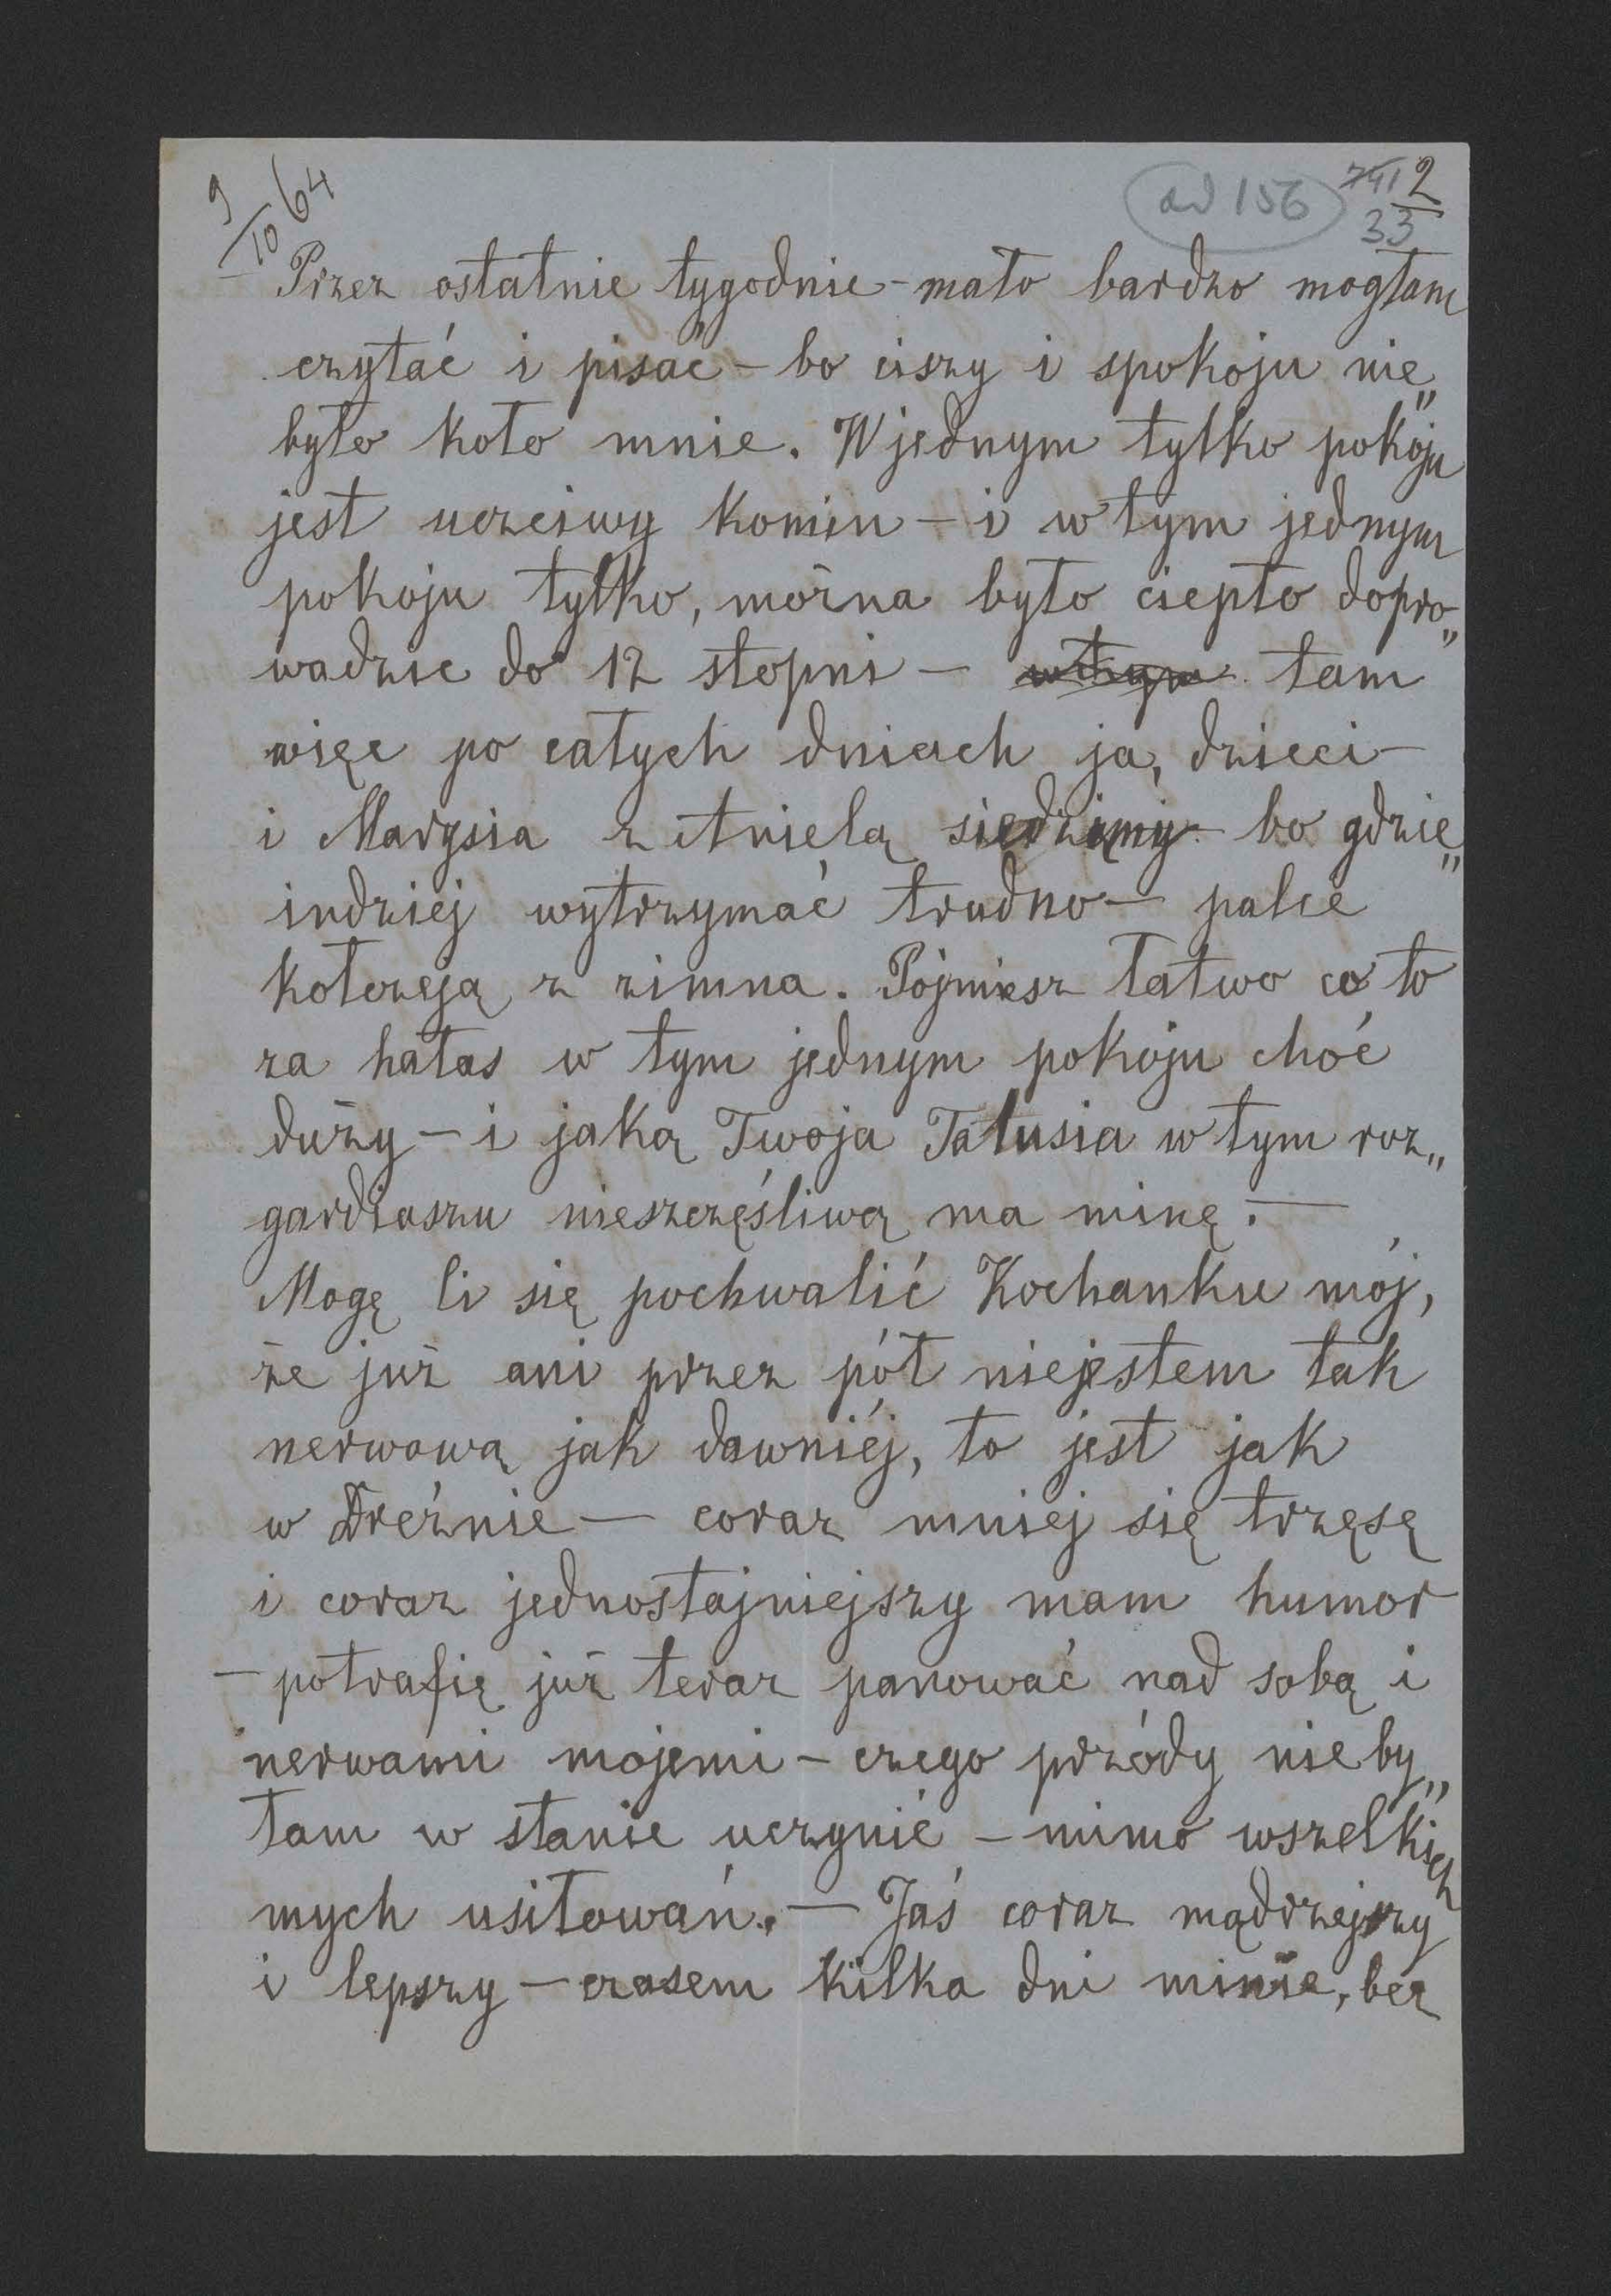 9/10 64
ad 156
741 2
33
Przez ostatnie tygodnie - mało bardzo mogłam
czytać i pisać - bo ciszy i spokoju nie„
było koło mnie. W jednym tylko pokoju
jest uczciwy komin - i w tym jednym
pokoju tylko, można było ciepło dopro„
wadzić do 12 stopni - w tym tam
więc po całych dniach ja, dzieci -
i Marysia z Anielą siedzimy - bo gdzie„
indziej wytrzymać trudno - palce
kołczeją z zimna. Pojmiesz łatwo co to
za hałas w tym jednym pokoju choć
duży - i jaką Twoja Talusia w tym roz„
gardiaszu nieszczęśliwą ma minę. -
Mogę li się pochwalić Kochanku mój,
że już ani przez pół niejestem tak
nerwową jak dawniéj, to jest jak
w Dreźnie - coraz mniej się trzęsę
i coraz jednostajniejszy mam humor
- potrafię już teraz panować nad sobą i
nerwami mojemi - czego przódy nie by„
łam w stanie uczynić - mimo wszelkich
mych usiłowań. - Jaś coraz mądrzejszy
i lepszy - czasem kilka dni minie, bez